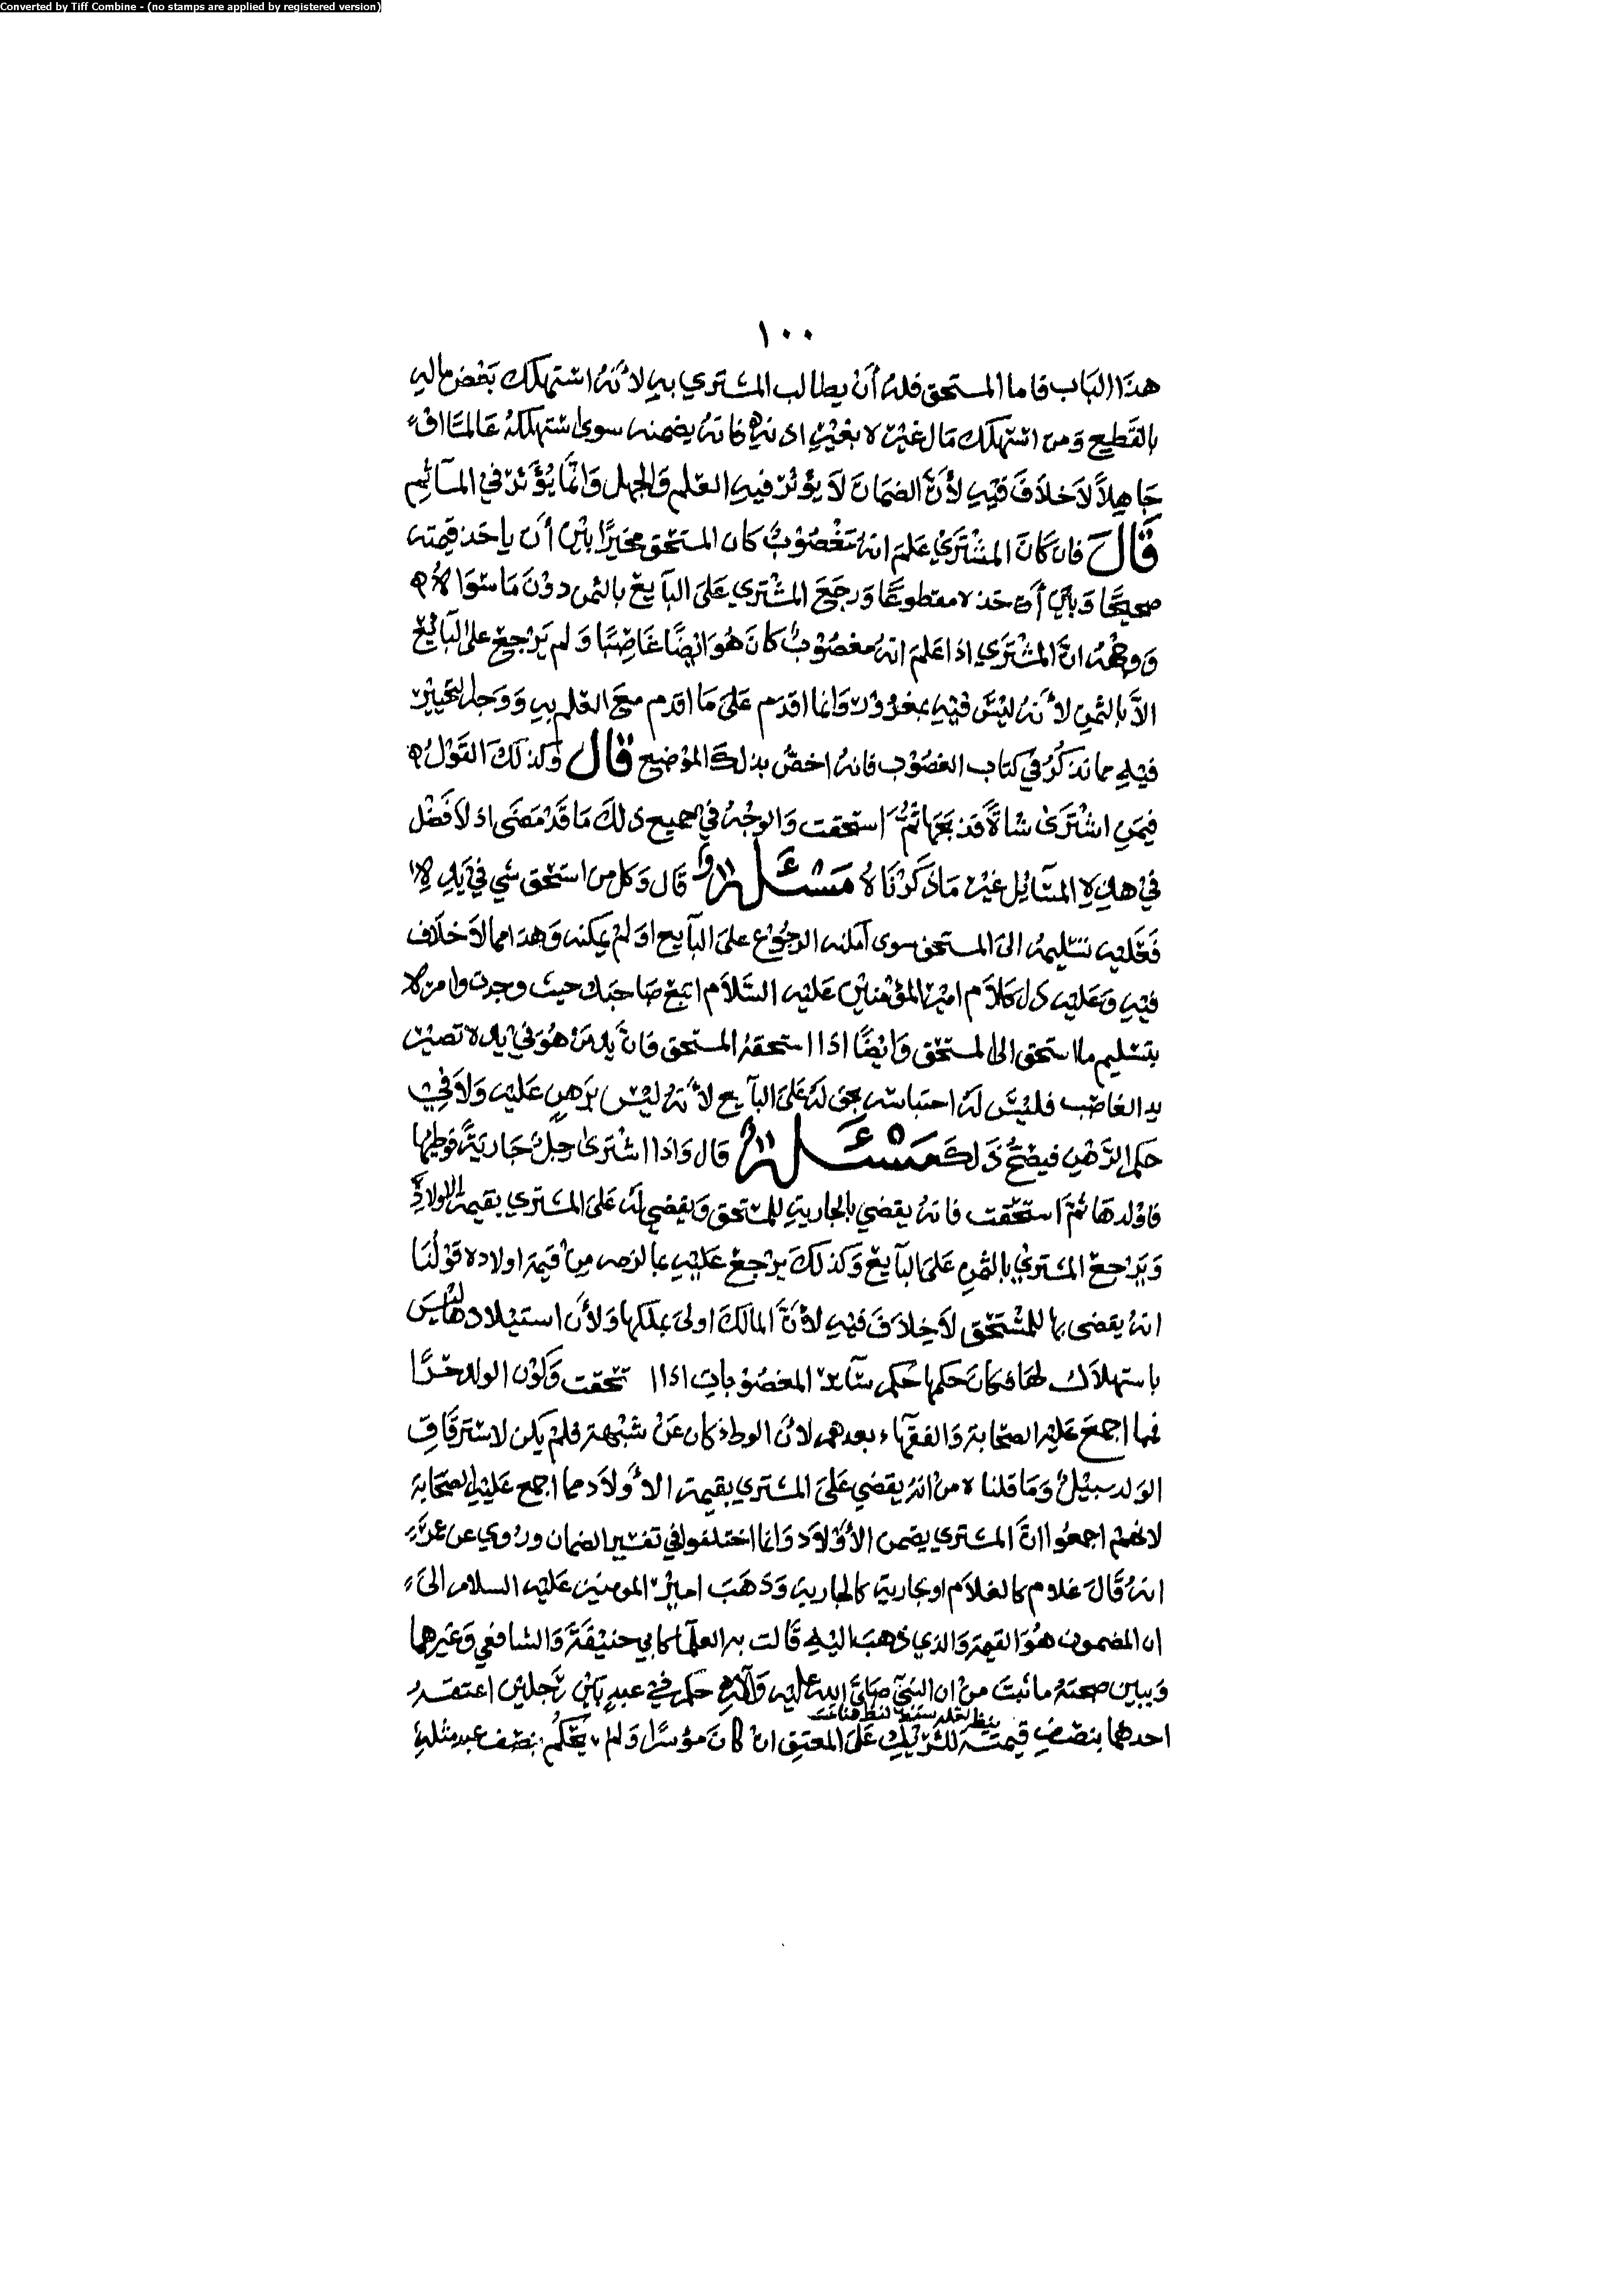 Converted by Tiff Combine - (no stamps are applied by registered version)
١٠٠
هذا الباب فاما المستحق فله أن يطالب المشتري به لأنه استهلك بعض ماله
بالقطع ومن استهلك مال غيره بغير اذنه فانه يضمنه سوى استهلكه عالما او
جاهلاً لا خلاف فيه لأن الضمان لا يؤثر فيه العلم والجهل وانما يؤثر في المآثم
قال فان كان المشتري علم انه مغصوب كان المستحق مخيرا بين أن ياخذ قيمته
صحيحا وبين أن ياخذه مقطوعا ورجع المشتري على البايع بالثمن دون ما سواه
ووجهه ان المشتري اذا علم انه مغصوب كان هو ايضا غاصبا ولم يرجع على البائع
الا بالثمن لأنه ليس فيه بمغرور وانما اقدم على ما اقدم مع العلم به ووجه التخيير
فيه مما نذكره في كتاب الغصوب فانه اخص بذلك الموضع قال وكذلك القول
فيمن اشترى شاة فذبحها ثم استحقت والوجه في جميع ذلك ما قد مضى اذ لا فصل
في هذه المسائل غير ما ذكرناه مسئلة قال وكل من استحق شي في يده
فعليه تسليمه الى المستحق سوى امكنه الرجوع على البايع او لم يمكنه وهذا مما لا خلاف
فيه وعليه دل كلام امير المؤمنين عليه السلام اتبع صاحبك حيث وجدت وامره
بتسليم ما استحق الى المستحق وايضا اذا استحقه المستحق فان يد من هو في يده تصير
يد الغاصب فليس له احتباسه بحق له على البايع لأنه ليس برهن عليه ولا في
حكم الرهن فيصح ذلك مسئلة قال واذا اشترى رجل جارية فوطيها
فاولدها ثم استحقت فانه يقضي بالجارية للمستحق ويقضي له على المشتري بقيمة الاولاد
ويرجع المشتري بالثمن على البايع وكذلك يرجع عليه بما لزمه من قيمة اولاده قولنا
انه يقضى بها للمستحق لا خلاف فيه لأن المالك اولى بملكها ولأن استيلادها ليس
باستهلاك لها فكان حكمها حكم سائر المغصوبات اذا استحقت وكون الولد حرا
فما اجمع عليه الصحابة والفقهاء بعدهم لأن الوطء كان عن شبهة فلم يكن لاسترقاق
الولد سبيل وما قلناه من انه يقضي على المشتري بقيمة الأولاد مما اجمع عليه الصحابة
لانهم اجمعوا ان المشتري يضمن الأولاد وانما اختلفوا في تفسير الضمان وروي عن عمر
انه قال غلام كالغلام او جارية كالجارية وذهب امير المومنين عليه السلام الى
ان المضمون هو القيمة والذي ذهب اليه قالت به العلماء كابي حنيفة والشافعي وغيرهما
ويبين صحته ما ثبت من ان النبي صلى الله عليه وآله حكم في عبد بين رجلين اعتقه
احدهما بنصف قيمته للشريك على المعتق ان كان مؤسرا ولم يحكم بنصف عبد مثله